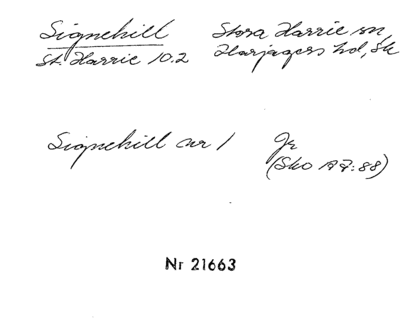 Signehill Stora Harrie sn,
St. Harrie 10.2 Harjagers hd, Sk
Signehill nr 1 Jr
(Sko A 7:88)
Nr 21663